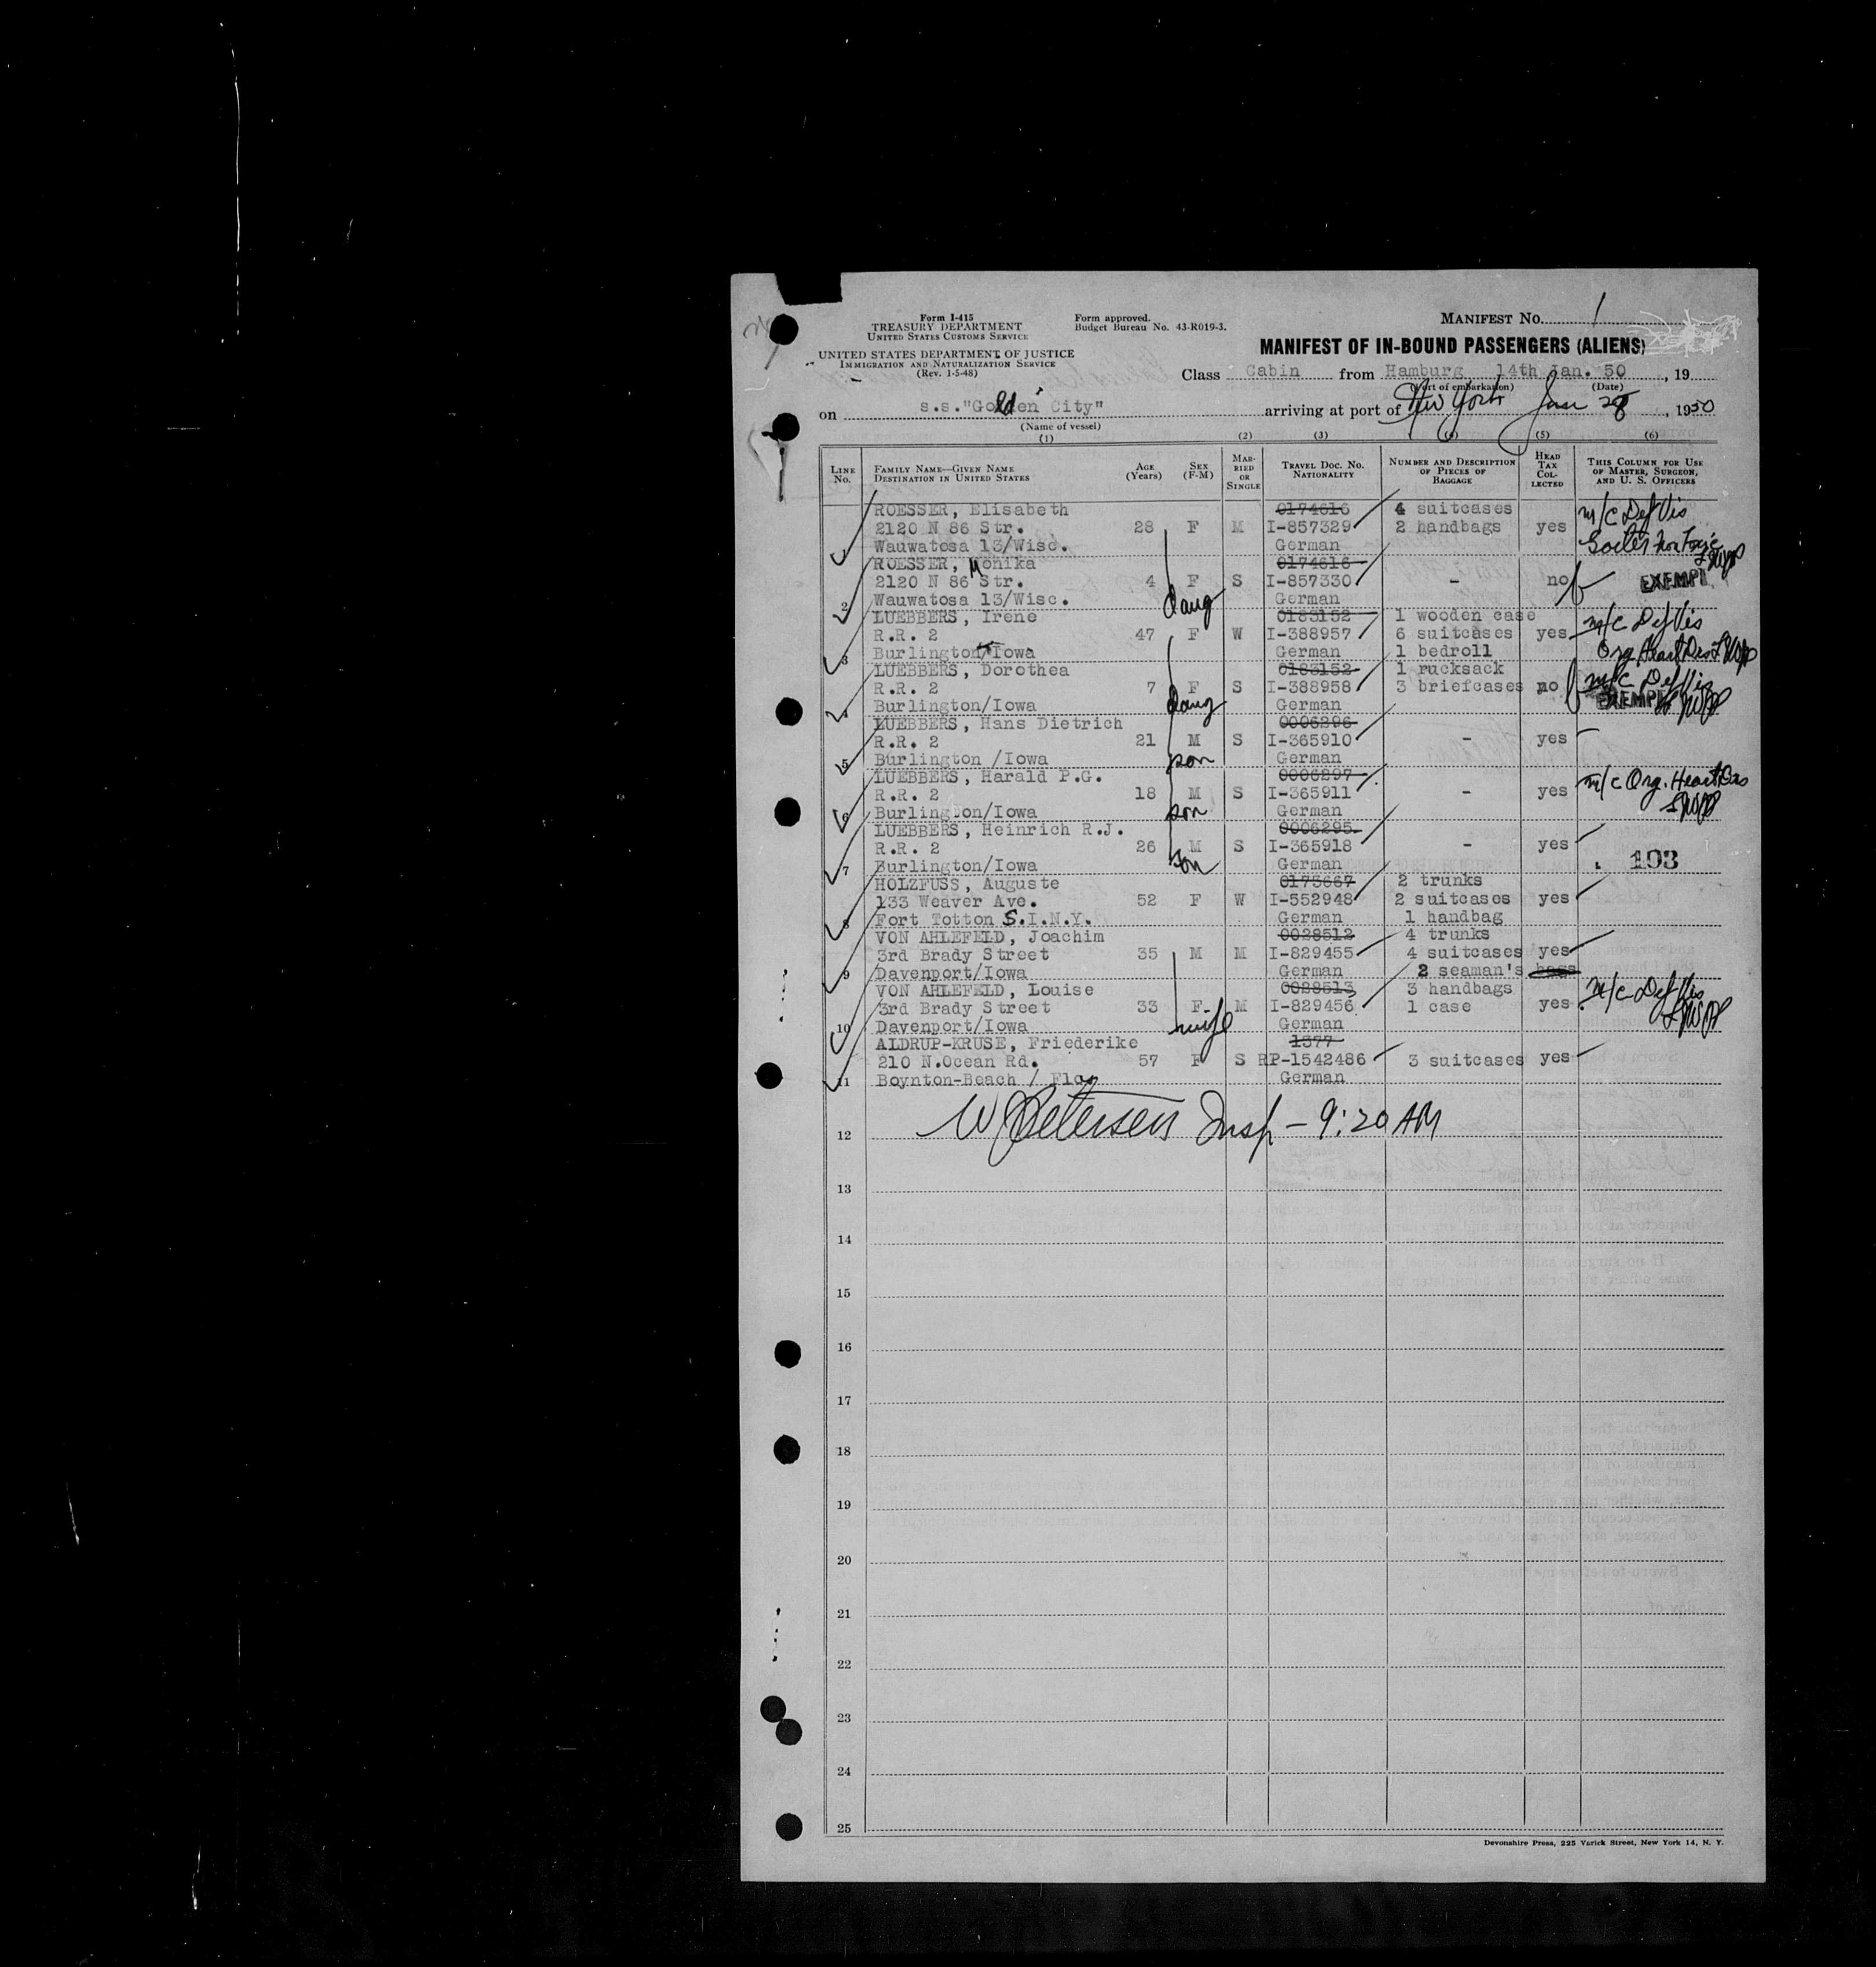 Form I-415
TREASURY DEPARTMENT
UNITED STATES CUSTOMS SERVICE
UNITED STATES DEPARTMENT OF JUSTICE
IMMIGRATION AND NATURALIZATION SERVICE
(Rev. 1-5-48)
Form approved.
Budget Bureau No. 43-R019-3.
MANIFEST NO. 1
MANIFEST OF IN-BOUND PASSENGERS (ALIENS)
Class Cabin from Hamburg 14th Jan. 50, 19
(Port of embarkation) (Date)
on s.s."Golden City" arriving at port of New York Jan 28, 1950
(Name of vessel)
(1) (2) (3) (4) (5) (6)
LINE NO. FAMILY NAME—GIVEN NAME DESTINATION IN UNITED STATES AGE (YEARS) SEX (F-M) MARRIED OR SINGLE TRAVEL DOC. NO. NATIONALITY NUMBER AND DESCRIPTION OF PIECES OF BAGGAGE HEAD TAX COLLECTED THIS COLUMN FOR USE OF MASTER, SURGEON, AND U. S. OFFICERS
ROESSER, Elisabeth 0174616 4 suitcases m/c Def Vis
2120 N 86 Str. 28 F M I-857329 2 handbags yes
Wauwatosa 13/Wisc. German
ROESSER, Monika 0174616
2120 N 86 Str. 4 F S I-857330 - no EXEMPT
2 Wauwatosa 13/Wisc. daug German
LUEBBERS, Irene 0183152 1 wooden case m/c Def Vis
R.R. 2 47 F W I-388957 6 suitcases yes
3 Burlington/Iowa German 1 bedroll Org. Heart Dis
LUEBBERS, Dorothea 0183152 1 rucksack
R.R. 2 7 F S I-388958 3 briefcases no m/c Def Vis
4 Burlington/Iowa daug German EXEMPT
LUEBBERS, Hans Dietrich 0006296
R.R. 2 21 M S I-365910 - yes
5 Burlington /Iowa son German
LUEBBERS, Harald P.G. 0006297
R.R. 2 18 M S I-365911 - yes m/c Org. Heart Dis
6 Burlington/Iowa son German
LUEBBERS, Heinrich R.J. 0006295
R.R. 2 26 M S I-365918 - yes
7 Burlington/Iowa son German 103
HOLZFUSS, Auguste 0173667 2 trunks
133 Weaver Ave. 52 F W I-552948 2 suitcases yes
8 Fort Totton S.I.N.Y. German 1 handbag
VON AHLEFELD, Joachim 0028512 4 trunks
3rd Brady Street 35 M M I-829455 4 suitcases yes
9 Davenport/Iowa German 2 seaman's bags
VON AHLEFELD, Louise 0028513 3 handbags m/c Def Vis
3rd Brady Street 33 F M I-829456 1 case yes
10 Davenport/Iowa wife German
ALDRUP-KRUSE, Friederike 1377
210 N.Ocean Rd. 57 F S RP-1542486 3 suitcases yes
11 Boynton-Beach / Fla. German
12 W Petersen Insp - 9:20 AM
13
14
15
16
17
18
19
20
21
22
23
24
25
Devonshire Press, 225 Varick Street, New York 14, N. Y.